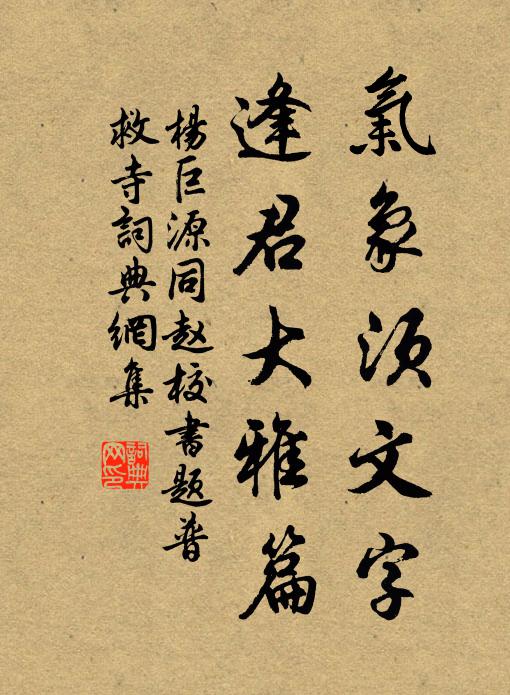 氣象須文字
逢君大雅篇
楊巨源同赵校書題普
救寺詞典網集
詞典网印